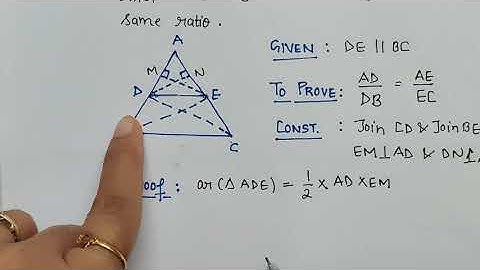 same ratio.
A
M N
D E
C
GIVEN : DE || BC
TO PROVE: AD/DB = AE/EC
CONST. : Join CD & Join BE
EM⊥AD & DN⊥
: ar(△ADE) = 1/2 × AD × EM